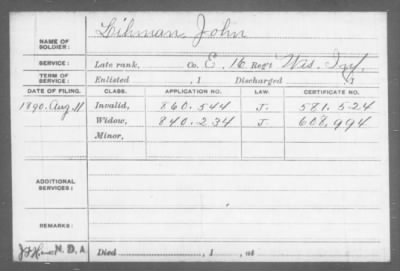 NAME OF SOLDIER: Lihman, John
SERVICE: Late rank, Co. E, 16 Reg't Wis. Inf.
TERM OF SERVICE: Enlisted , 1 Discharged , 1
DATE OF FILING. CLASS. APPLICATION NO. LAW. CERTIFICATE NO.
1890. Aug. 11 Invalid, 860.544 J. 581.524
Widow, 840.234 J. 608,994
Minor,
ADDITIONAL SERVICES:
REMARKS:
N.D.A. Died , 1 , at